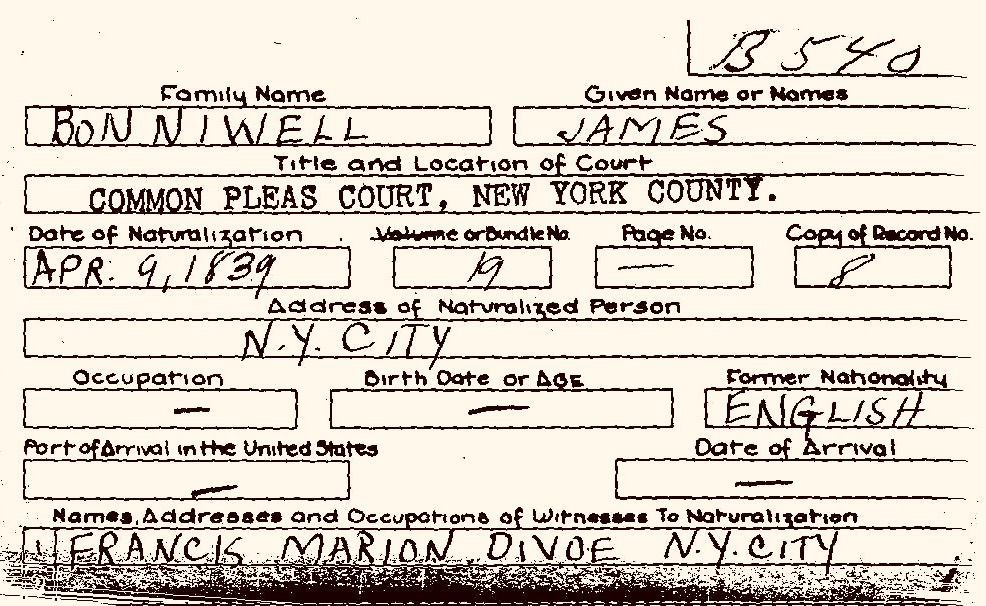 B 540
Family Name Given Name or Names
BONNIWELL JAMES
Title and Location of Court
COMMON PLEAS COURT, NEW YORK COUNTY.
Date of Naturalization Volume or Bundle No. Page No. Copy of Record No.
APR. 9, 1839 19 — 8
Address of Naturalized Person
N.Y. CITY
Occupation Birth Date or Age Former Nationality
— — ENGLISH
Port of Arrival in the United States Date of Arrival
— —
Names, Addresses and Occupations of Witnesses To Naturalization
1 FRANCIS MARION DIVOE N.Y. CITY